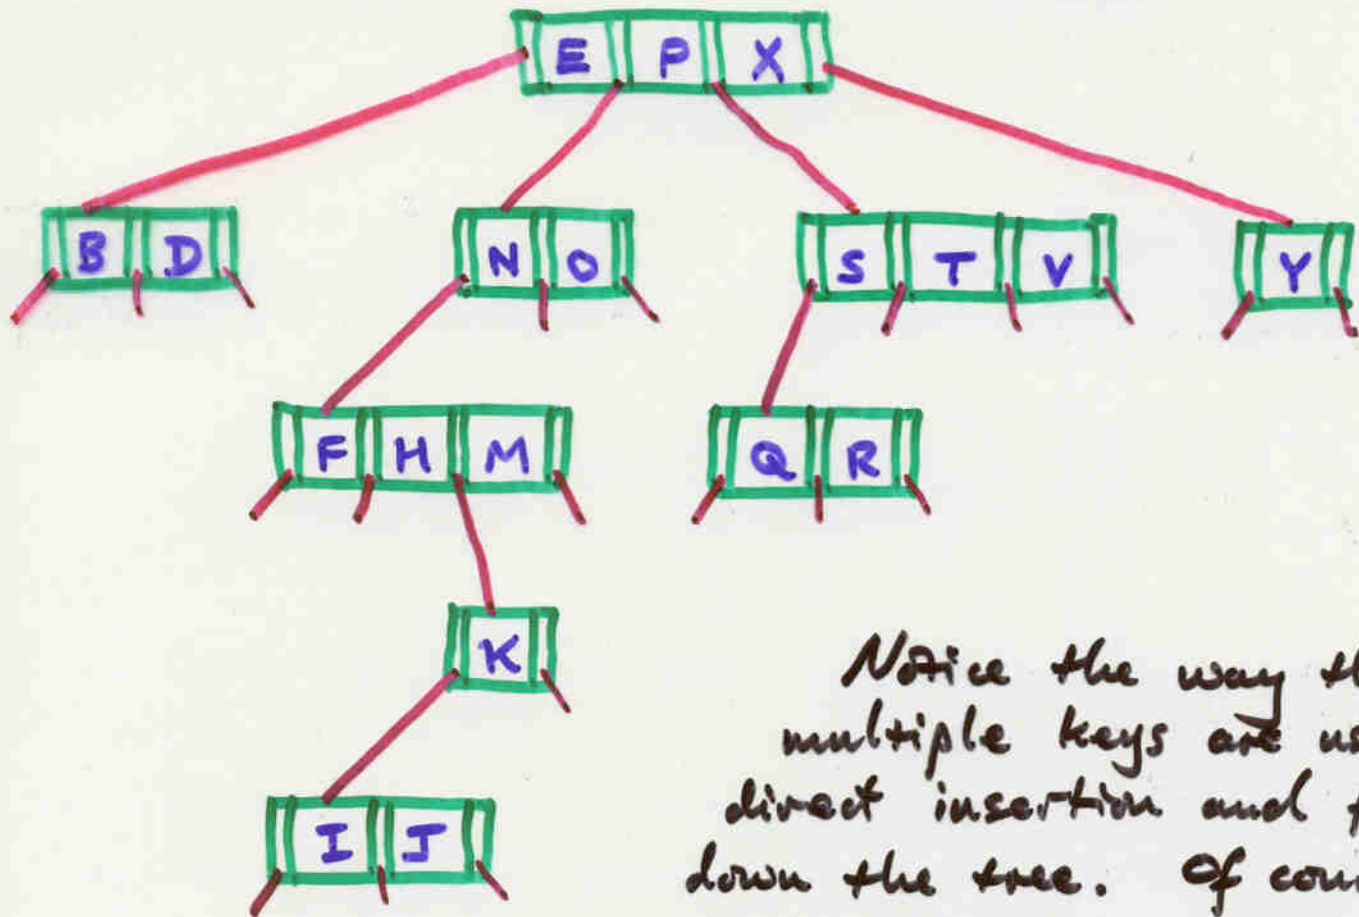 E P X
B D N O S T V Y
F H M Q R
K
Notice the way
multiple keys are
direct insertion and
I J
down the tree. Of